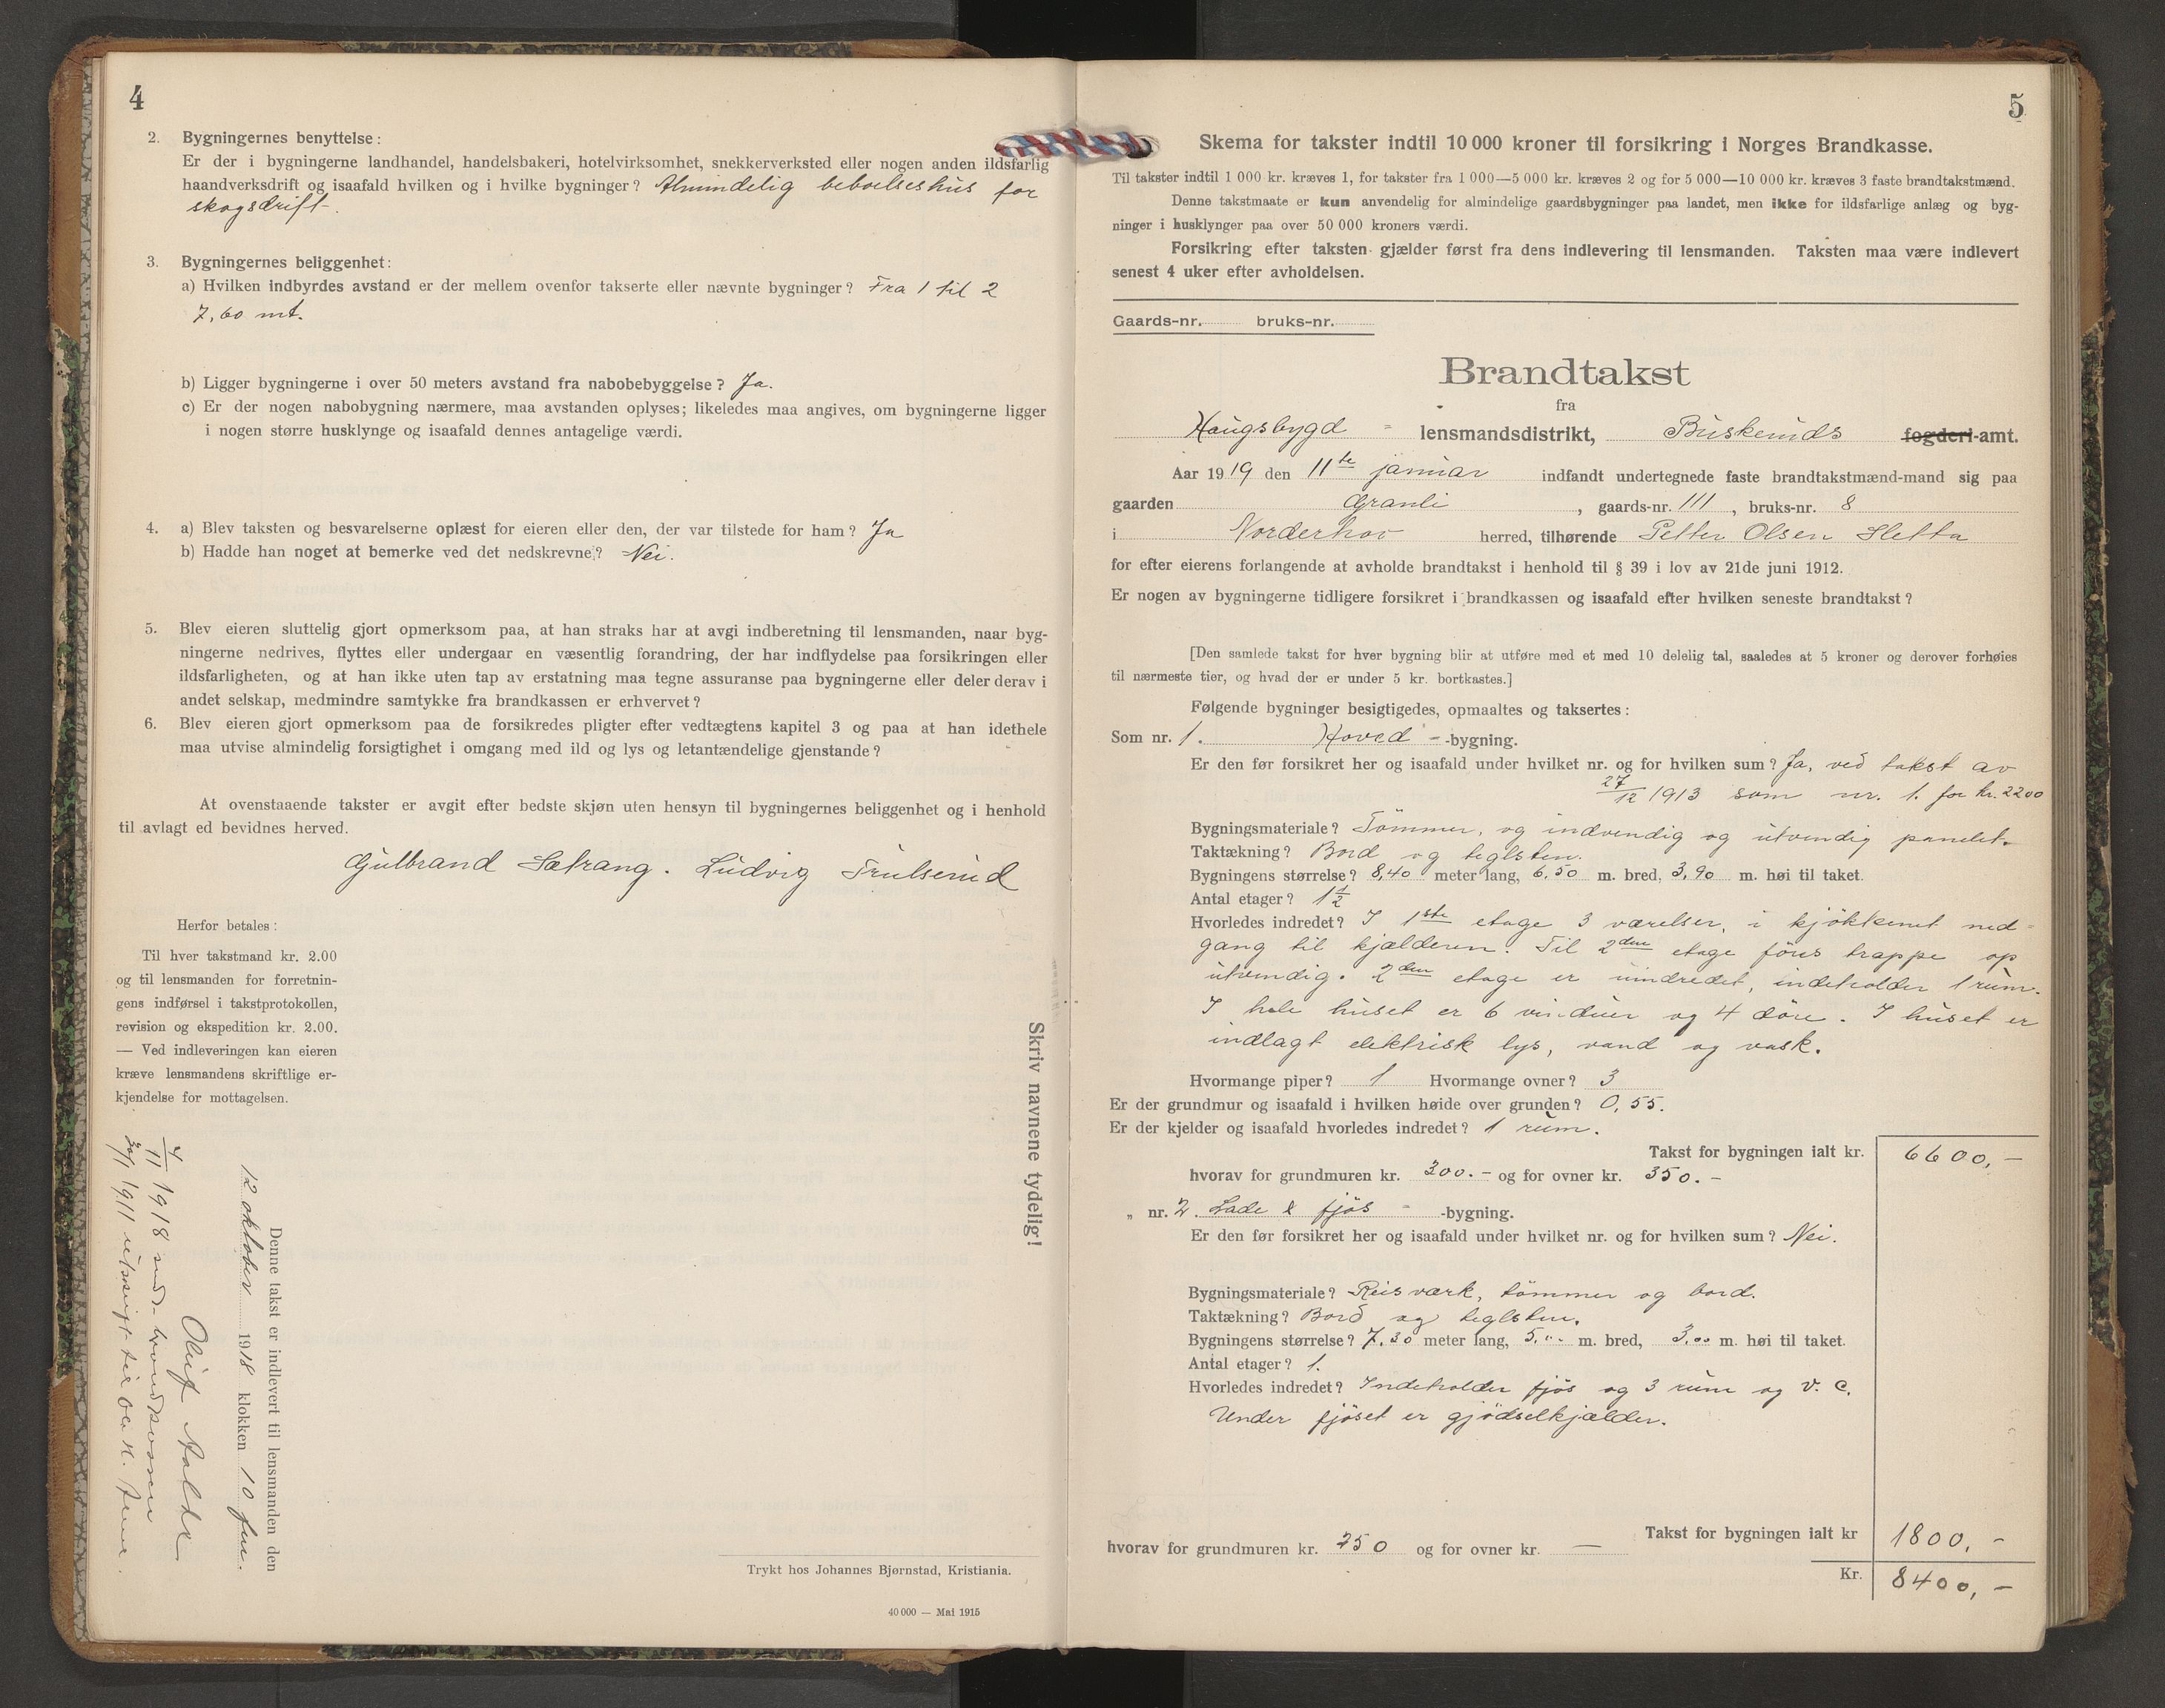 4
2. Bygningernes benyttelse:
Er der i bygningerne landhandel, handelsbakeri, hotelvirksomhet, snekkerverksted eller nogen anden ildsfarlig
haandverksdrift og isaafald hvilken og i hvilke bygninger? Almindelig beboelseshus for
skogsdrift.
3. Bygningernes beliggenhet:
a) Hvilken indbyrdes avstand er der mellem ovenfor takserte eller nævnte bygninger? Fra 1 til 2
7,60 mt.
b) Ligger bygningerne i over 50 meters avstand fra nabobebyggelse? Ja.
c) Er der nogen nabobygning nærmere, maa avstanden oplyses; likeledes maa angives, om bygningerne ligger
i nogen større husklynge og isaafald dennes antagelige værdi.
4. a) Blev taksten og besvarelserne oplæst for eieren eller den, der var tilstede for ham? Ja
b) Hadde han noget at bemerke ved det nedskrevne? Nei.
5. Blev eieren sluttelig gjort opmerksom paa, at han straks har at avgi indberetning til lensmanden, naar byg-
ningerne nedrives, flyttes eller undergaar en væsentlig forandring, der har indflydelse paa forsikringen eller
ildsfarligheten, og at han ikke uten tap av erstatning maa tegne assuranse paa bygningerne eller deler derav i
andet selskap, medmindre samtykke fra brandkassen er erhvervet?
6. Blev eieren gjort opmerksom paa de forsikredes pligter efter vedtægtens kapitel 3 og paa at han idethele
maa utvise almindelig forsigtighet i omgang med ild og lys og letantændelige gjenstande?
At ovenstaaende takster er avgit efter bedste skjøn uten hensyn til bygningernes beliggenhet og i henhold
til avlagt ed bevidnes herved.
Gulbrand Sætrang. Ludvig Trulserud
Herfor betales:
Til hver takstmand kr. 2.00
og til lensmanden for forretnin-
gens indførsel i takstprotokollen,
revision og ekspedition kr. 2.00.
— Ved indleveringen kan eieren
kræve lensmandens skriftlige er-
kjendelse for mottagelsen.
Skriv navnene tydelig!
Denne takst er indlevert til lensmanden den
12 oktober 1918 klokken 10 fm.
Oluf
1918
Trykt hos Johannes Bjørnstad, Kristiania.
40 000 — Mai 1915
5
Skema for takster indtil 10 000 kroner til forsikring i Norges Brandkasse.
Til takster indtil 1 000 kr. kræves 1, for takster fra 1 000—5 000 kr. kræves 2 og for 5 000—10 000 kr. kræves 3 faste brandtakstmænd.
Denne takstmaate er kun anvendelig for almindelige gaardsbygninger paa landet, men ikke for ildsfarlige anlæg og byg-
ninger i husklynger paa over 50 000 kroners værdi.
Forsikring efter taksten gjælder først fra dens indlevering til lensmanden. Taksten maa være indlevert
senest 4 uker efter avholdelsen.
Gaards-nr. bruks-nr.
Brandtakst
fra
Haugsbygd lensmandsdistrikt, Buskeruds fogderi-amt.
Aar 1919 den 11te januar indfandt undertegnede faste brandtakstmænd-mand sig paa
gaarden Granli, gaards-nr. 111, bruks-nr. 8
i Norderhov herred, tilhørende Petter Olsen Sletta
for efter eierens forlangende at avholde brandtakst i henhold til § 39 i lov av 21de juni 1912.
Er nogen av bygningerne tidligere forsikret i brandkassen og isaafald efter hvilken seneste brandtakst?
[Den samlede takst for hver bygning blir at utføre med et med 10 delelig tal, saaledes at 5 kroner og derover forhøies
til nærmeste tier, og hvad der er under 5 kr. bortkastes.]
Følgende bygninger besigtigedes, opmaaltes og taksertes:
Som nr. 1. Hoved - -bygning.
Er den før forsikret her og isaafald under hvilket nr. og for hvilken sum? Ja, ved takst av
27/12 1913 som nr. 1. for kr. 2200
Bygningsmateriale? Tömmer, og indvendig og utvendig panelet.
Taktækning? Bord og teglsten.
Bygningens størrelse? 8,40 meter lang, 6,50 m. bred, 3,90 m. høi til taket.
Antal etager? 1 1/2
Hvorledes indredet? I 1ste etage 3 værelser, i kjökkenet ned-
gang til kjælderen. Til 2den etage föres trappe op
utvendig. 2den etage er uindredet, indeholder 1 rum.
I hele huset er 6 vinduer og 4 döre. I huset er
indlagt elektrisk lys, vand og vask.
Hvormange piper? 1 Hvormange ovner? 3
Er der grundmur og isaafald i hvilken høide over grunden? 0,55.
Er der kjelder og isaafald hvorledes indredet? 1 rum.
Takst for bygningen ialt kr. 6600,-
hvorav for grundmuren kr. 300.- og for ovner kr. 350.-
„ nr. 2. Lade & fjös - -bygning.
Er den før forsikret her og isaafald under hvilket nr. og for hvilken sum? Nei.
Bygningsmateriale? Reisværk, tömmer og bord.
Taktækning? Bord og teglsten.
Bygningens størrelse? 7,30 meter lang, 5,00 m. bred, 3,00 m. høi til taket.
Antal etager? 1.
Hvorledes indredet? Indeholder fjös og 3 rum og v. c.
Under fjöset er gjödselkjælder.
Takst for bygningen ialt kr 1800,-
hvorav for grundmuren kr. 250 og for ovner kr. —
Kr. 8400,-